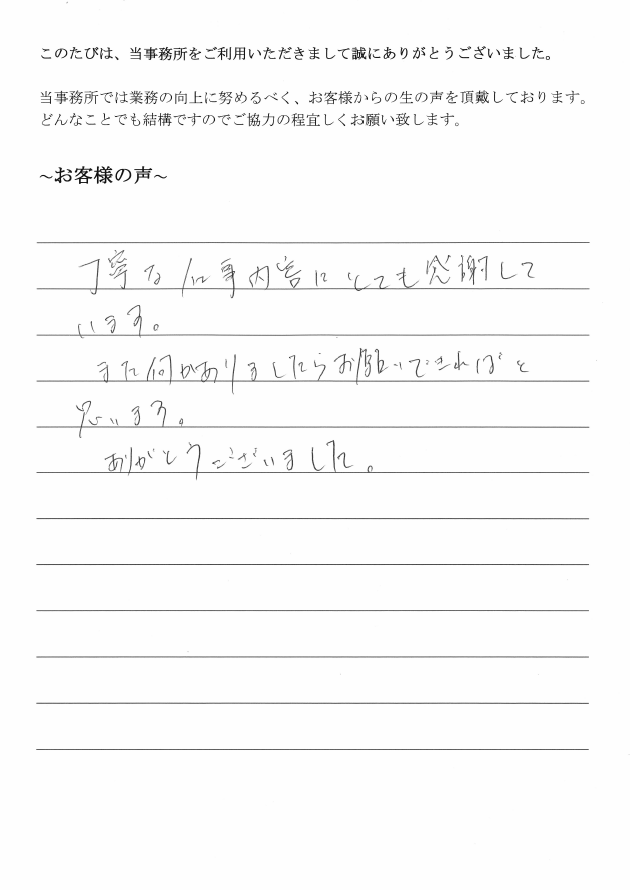 このたびは、当事務所をご利用いただきまして誠にありがとうございました。
当事務所では業務の向上に努めるべく、お客様からの生の声を頂戴しております。
どんなことでも結構ですのでご協力の程宜しくお願い致します。
～お客様の声～
丁寧な仕事内容にとても感謝して
います。
また何かありましたらお願いできればと
思います。
ありがとうございました。